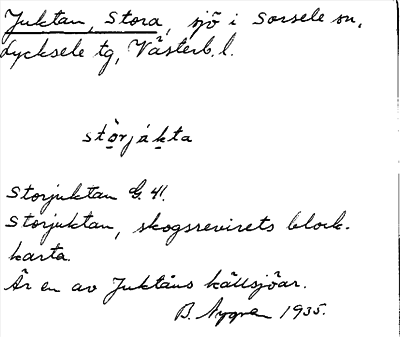 Juktan, Stora, sjö i Sorsele sn,
Lycksele tg, Västerb. l.
stòrjákta
Storjuktan G. 41.
Storjuktan, skogsrevirets block-
karta.
Är en av Juktåns källsjöar.
B. Nygren 1935.